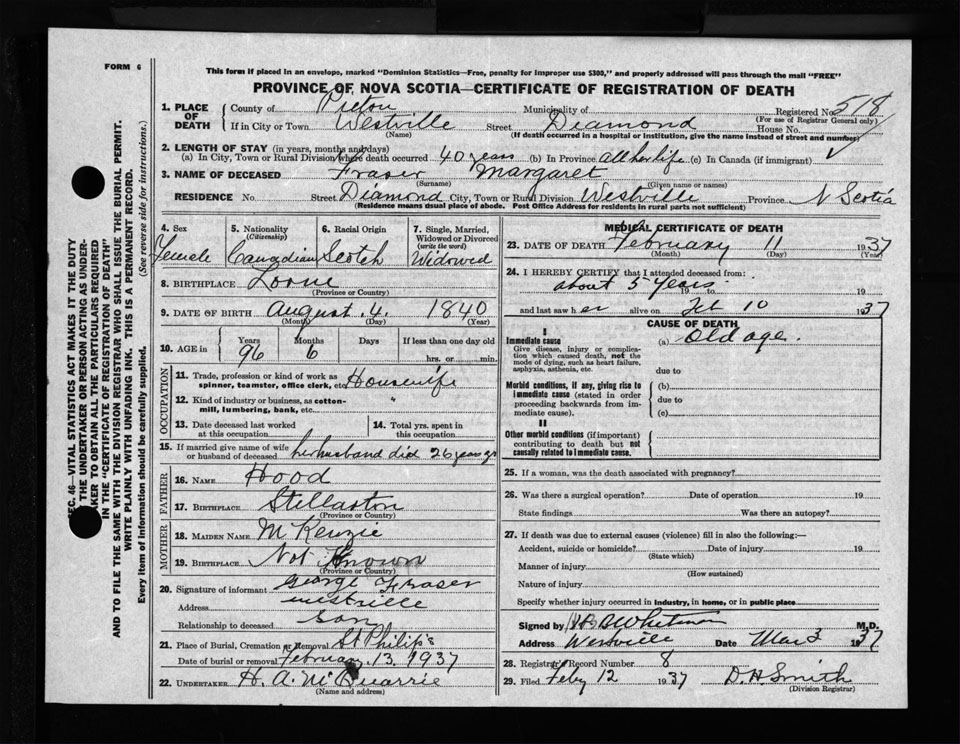 FORM 6
This form if placed in an envelope, marked "Dominion Statistics—Free, penalty for improper use $300," and properly addressed will pass through the mail "FREE"
PROVINCE OF NOVA SCOTIA—CERTIFICATE OF REGISTRATION OF DEATH
1. PLACE OF DEATH { County of Pictou Municipality of Registered No. 518
(For use of Registrar General only)
If in City or Town Westville Street Diamond House No.
(Name) (If death occurred in a hospital or institution, give the name instead of street and number)
2. LENGTH OF STAY (in years, months and days)
(a) In City, Town or Rural Division where death occurred 40 years (b) In Province all her life (c) In Canada (if immigrant)
3. NAME OF DECEASED Fraser Margaret
(Surname) (Given name or names)
RESIDENCE No. Street Diamond City, Town or Rural Division Westville Province N Scotia
(Residence means usual place of abode. Post Office Address for residents in rural parts not sufficient)
4. Sex Female
5. Nationality (Citizenship) Canadian
6. Racial Origin Scotch
7. Single, Married, Widowed or Divorced (write the word) Widowed
8. BIRTHPLACE Lorne
(Province or Country)
9. DATE OF BIRTH August 4 1840
(Month) (Day) (Year)
10. AGE in { Years 96 Months 6 Days If less than one day old hrs. or min.
OCCUPATION
11. Trade, profession or kind of work as spinner, teamster, office clerk, etc. Housewife
12. Kind of industry or business, as cotton-mill, lumbering, bank, etc. "
13. Date deceased last worked at this occupation
14. Total yrs. spent in this occupation
15. If married give name of wife or husband of deceased her husband did 26 years ago
FATHER
16. NAME Hood
17. BIRTHPLACE Stellarton
(Province or Country)
MOTHER
18. MAIDEN NAME McKenzie
19. BIRTHPLACE Not Known
(Province or Country)
20. Signature of informant George Fraser
Address westville
Relationship to deceased Son
21. Place of Burial, Cremation or Removal St Philip's
Date of burial or removal February 13. 1937
22. UNDERTAKER H. A. McQuarrie
(Name and address)
MEDICAL CERTIFICATE OF DEATH
23. DATE OF DEATH February 11 1937
(Month) (Day) (Year)
24. I HEREBY CERTIFY that I attended deceased from:
about 5 years 19 to 19
and last saw her alive on Feb 10 1937
CAUSE OF DEATH
I
Immediate cause (a) Old age.
Give disease, injury or complication which caused death, not the mode of dying, such as heart failure, asphyxia, asthenia, etc.
due to
Morbid conditions, if any, giving rise to immediate cause (stated in order proceeding backwards from immediate cause).
(b)
due to
(c)
II
Other morbid conditions (if important) contributing to death but not causally related to immediate cause.
25. If a woman, was the death associated with pregnancy?
26. Was there a surgical operation? Date of operation 19
State findings Was there an autopsy?
27. If death was due to external causes (violence) fill in also the following:—
Accident, suicide or homicide? Date of injury 19
(State which)
Manner of injury
(How sustained)
Nature of injury
Specify whether injury occurred in industry, in home, or in public place
Signed by Whitman M.D.
Address Westville Date Mar 3 1937
28. Registrar's Record Number 8
29. Filed Feby 12 1937 D. H. Smith
(Division Registrar)
EC. 46—VITAL STATISTICS ACT MAKES IT THE DUTY
THE UNDERTAKER OR PERSON ACTING AS UNDER-
KER TO OBTAIN ALL THE PARTICULARS REQUIRED
IN THE "CERTIFICATE OF REGISTRATION OF DEATH"
AND TO FILE THE SAME WITH THE DIVISION REGISTRAR WHO SHALL ISSUE THE BURIAL PERMIT.
WRITE PLAINLY WITH UNFADING INK. THIS IS A PERMANENT RECORD.
Every item of information should be carefully supplied. (See reverse side for instructions.)